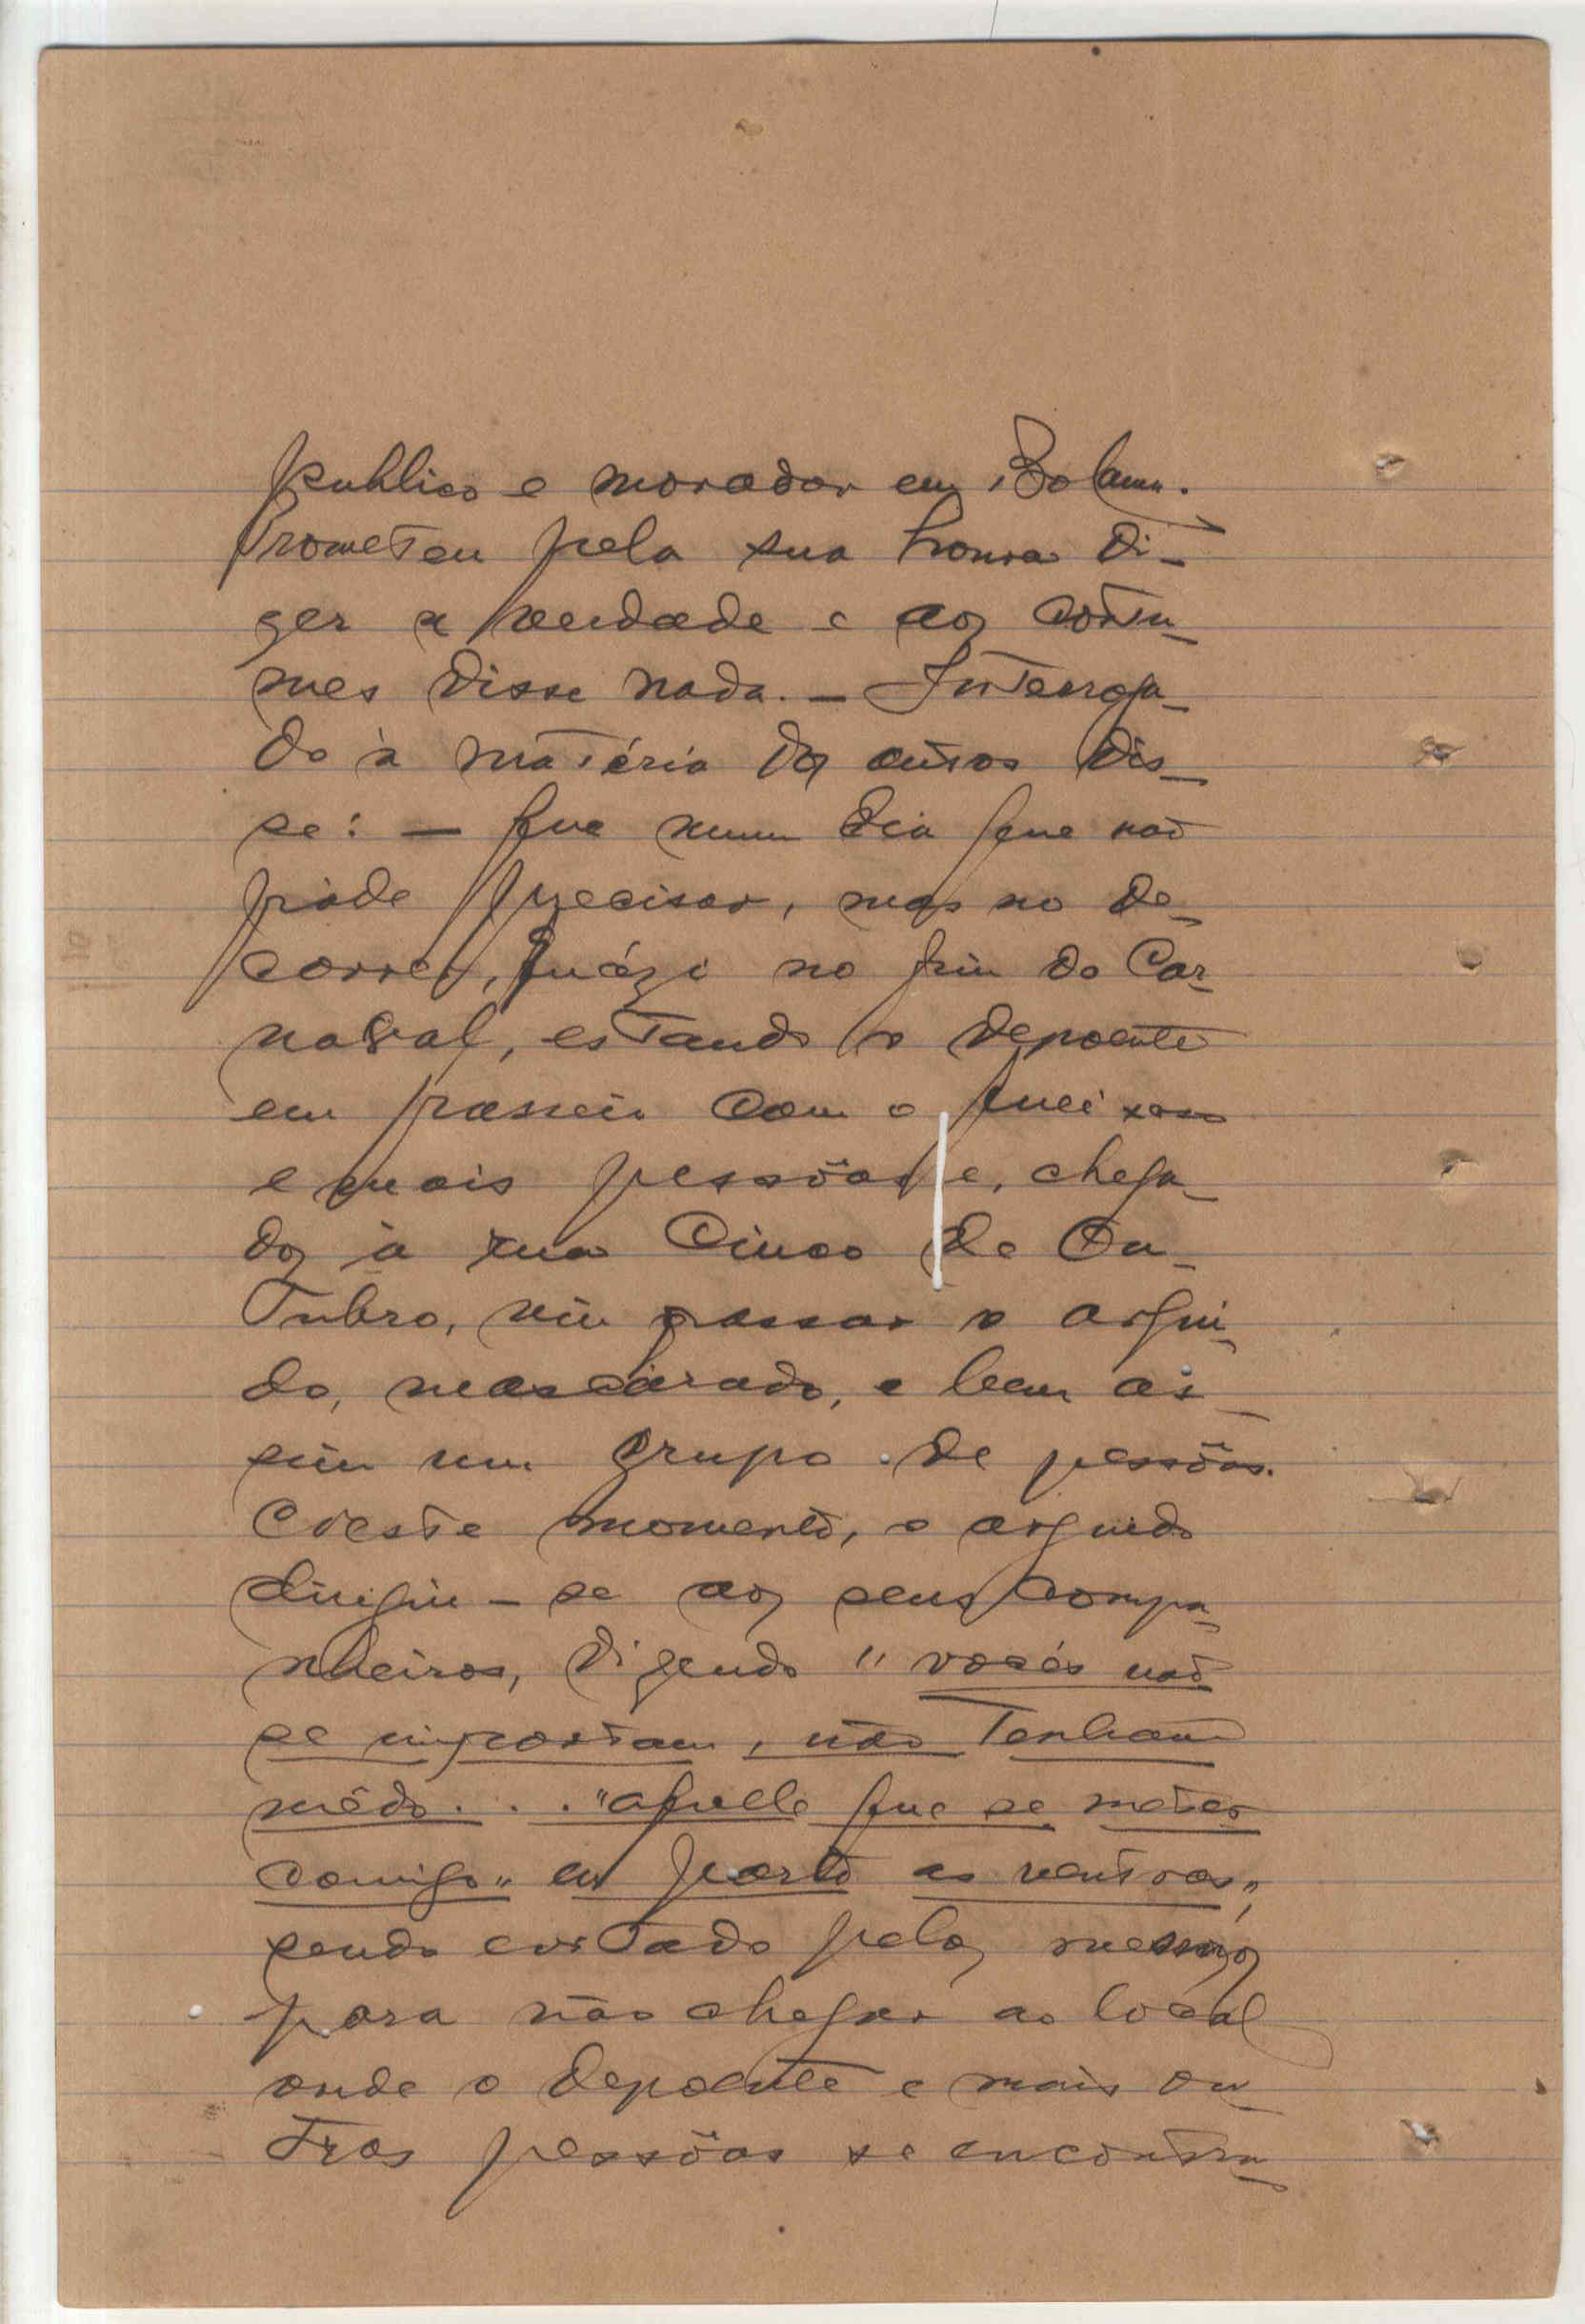 publico e morador em Bolama.
Prometeu pela sua honra di-
zer a verdade e aos costu-
mes disse nada. — Interroga-
do à matéria dos autos dis-
se: — Que num dia que não
póde precisar, mas no de-
correr, quázi no fim do Car-
naval, estando o depoente
em passeio com o queixoso
e mais pessôas e, chega-
dos à rua Cinco de Ou-
tubro, viu passar o argui-
do, mascárado, e bem as-
sim um grupo de pessôas.
Neste momento, o arguido
dirigiu-se aos seus compa-
nheiros, dizendo "vocês não
se importam, não tenham
mêdo... "aquelle que se meter
comigo" eu parto as ventas",
sendo evitado pelos mesmos
para não chegar ao local
onde o depoente e mais ou-
tras pessôas se encontra-